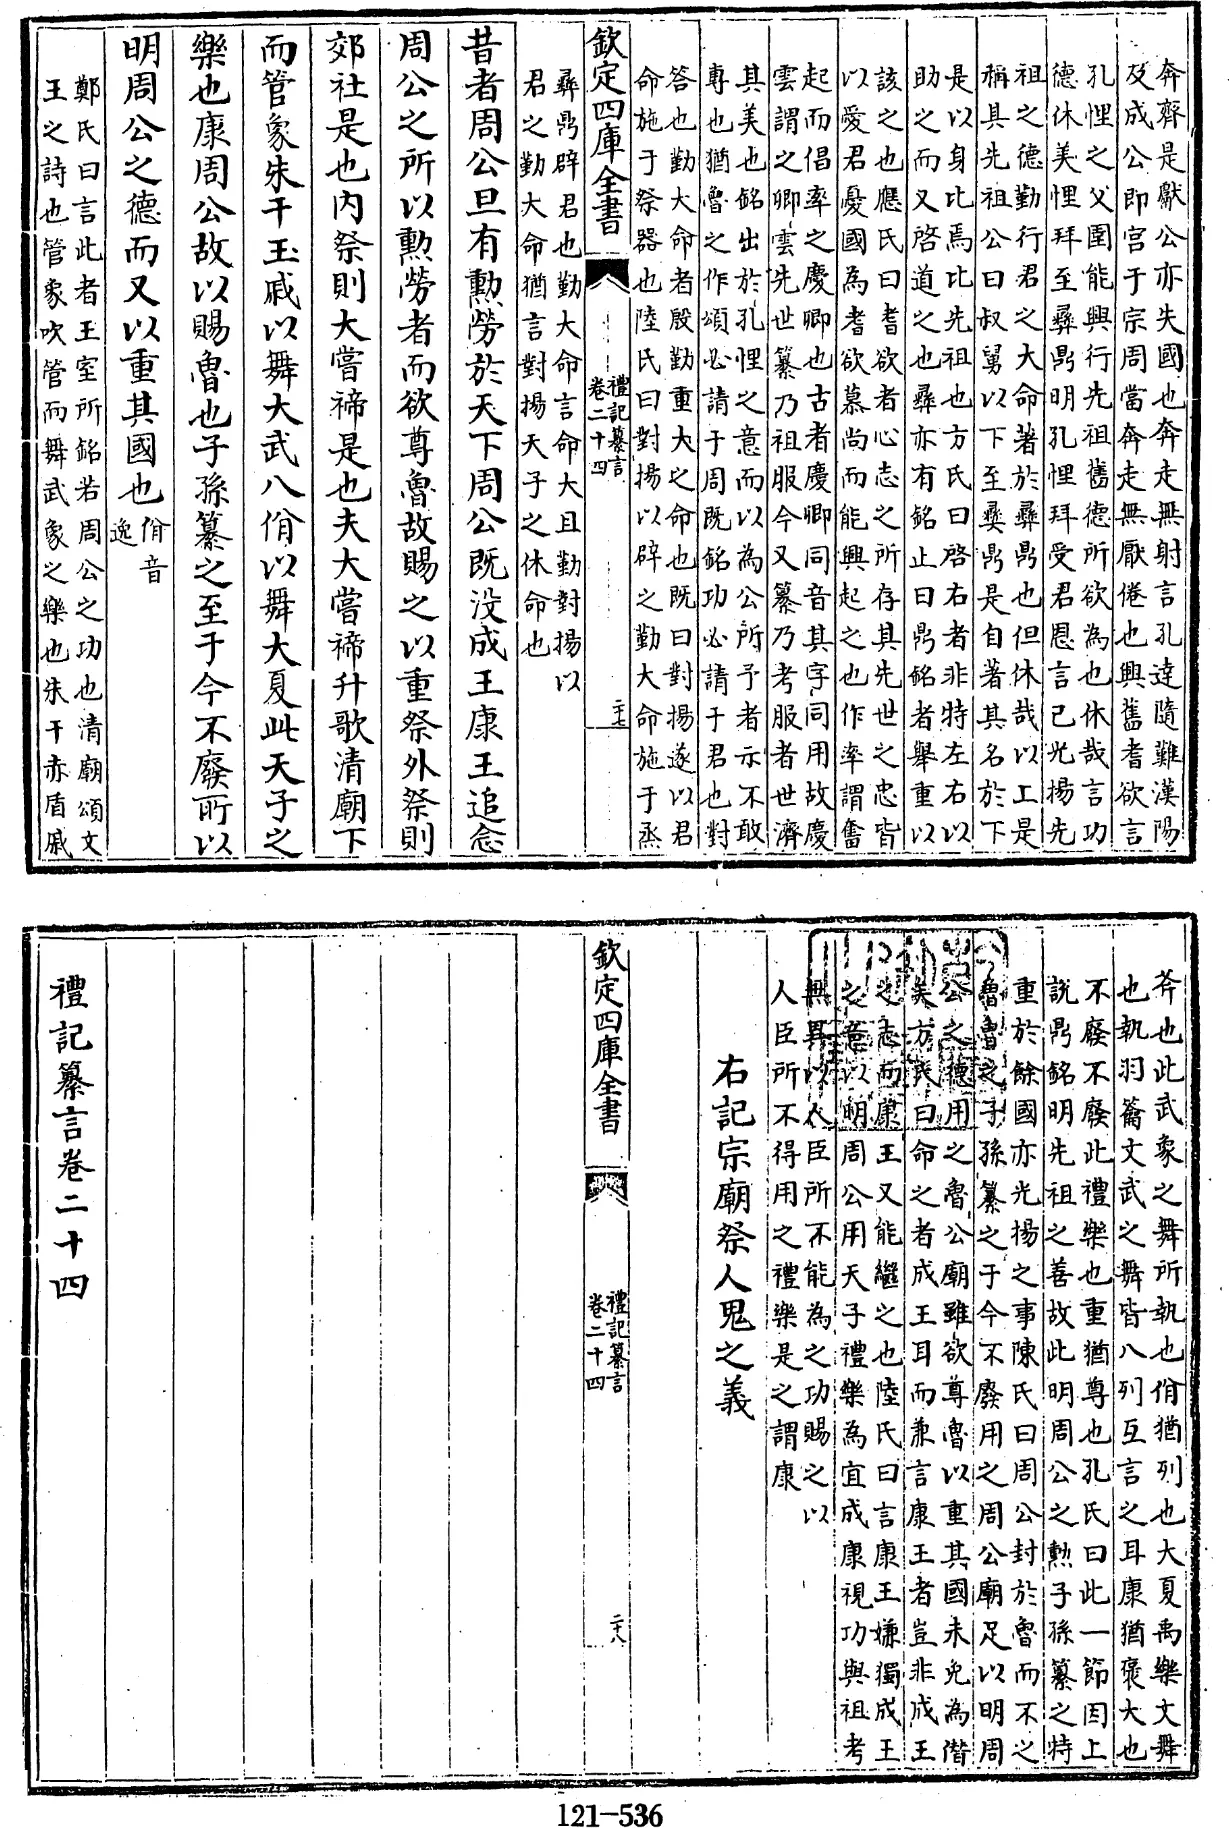 奔齊是獻公亦失國也奔走無射言孔達隨難漢陽
及成公即宮于宗周當奔走無厭倦也興舊耆欲言
孔悝之父圉能興行先祖舊德所欲為也休哉言功
德休美悝拜至彝鼎明孔悝拜受君恩言己光揚先
祖之德勤行君之大命著於彝鼎也但休哉以上是
稱其先祖公曰叔舅以下至彝鼎是自著其名於下
是以身比焉比先祖也方氏曰啓右者非特左右以
助之而又啓道之也彝亦有銘止曰鼎銘者舉重以
該之也應氏曰耆欲者心志之所存其先世之忠皆
以愛君憂國為耆欲慕尚而能興起之也作率謂奮
起而倡率之慶卿也古者慶卿同音其字同用故慶
雲謂之卿雲先世纂乃祖服今又纂乃考服者世濟
其美也銘出於孔悝之意而以為公所予者示不敢
專也猶魯之作頌必請于周既銘功必請于君也對
答也勤大命者殷勤重大之命也既曰對揚遂以君
命施于祭器也陸氏曰對揚以辟之勤大命施于烝
欽定四庫全書
禮記纂言
卷二十四
二十七
彝鼎辟君也勤大命言命大且勤對揚以
君之勤大命猶言對揚天子之休命也
昔者周公旦有勲勞於天下周公既没成王康王追念
周公之所以勲勞者而欲尊魯故賜之以重祭外祭則
郊社是也内祭則大嘗禘是也夫大嘗禘升歌清廟下
而管象朱干玉戚以舞大武八佾以舞大夏此天子之
樂也康周公故以賜魯也子孫纂之至于今不廢所以
明周公之德而又以重其國也佾音
逸
鄭氏曰言此者王室所銘若周公之功也清廟頌文
王之詩也管象吹管而舞武象之樂也朱干赤盾戚
斧也此武象之舞所執也佾猶列也大夏禹樂文舞
也執羽籥文武之舞皆八列互言之耳康猶襃大也
不廢不廢此禮樂也重猶尊也孔氏曰此一節因上
說鼎銘明先祖之善故此明周公之勲子孫纂之特
重於餘國亦光揚之事陳氏曰周公封於魯而不之
魯魯之子孫纂之于今不廢用之周公廟足以明周
公之德用之魯公廟雖欲尊魯以重其國未免為僭
矣方氏曰命之者成王耳而兼言康王者豈非成王
之志而康王又能繼之也陸氏曰言康王嫌獨成王
之意以明周公用天子禮樂為宜成康視功與祖考
無異以人臣所不能為之功賜之以
人臣所不得用之禮樂是之謂康
右記宗廟祭人鬼之義
欽定四庫全書
禮記纂言
卷二十四
二十八
禮記纂言卷二十四
121-536